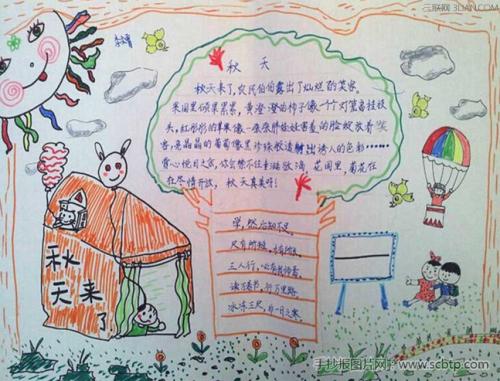 三联网 3LIAN.COM
秋 天
秋天来了,农民伯伯露出了灿烂的笑容。
果园里硕果累累,黄澄澄的柿子像一个个灯笼高挂枝
头,红彤彤的苹果像一张张胖娃娃害羞的脸绽放着笑
容,亮晶晶的葡萄像黑珍珠般透射出诱人的色彩……
赏心悦目之余,你会禁不住垂涎欲滴,花园里,菊花在
在尽情开放, 秋天真美呀!
学,然后知不足。
尺有所短,寸有所长。
三人行,必有我师焉
读万卷书,行万里路。
冰冻三尺,非一日之寒。
秋
天来了
手抄报图片网 www.scbtp.com